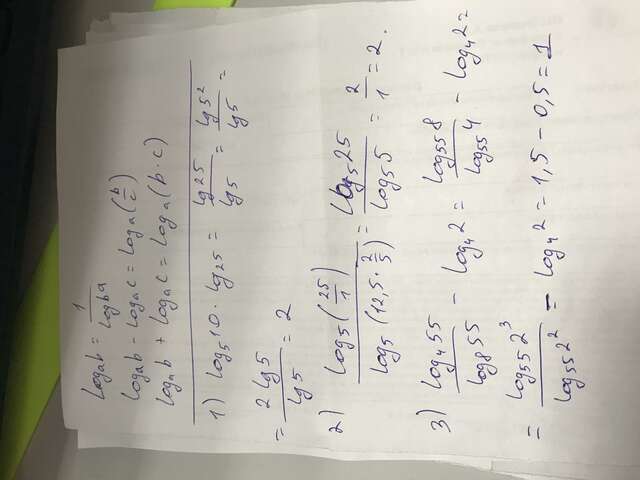 logₐb = 1/log_b a
logₐb - logₐc = logₐ(b/c)
logₐb + logₐc = logₐ(b·c)
1) log₅10 · lg25 = lg25/lg5 = lg5²/lg5 =
= 2lg5/lg5 = 2
2) log₅(25/1)/log₅(12,5·2/5) = log₅25/log₅5 = 2/1 = 2.
3) log₄55/log₈55 - log₄2 = log₅₅8/log₅₅4 - log₄2 =
= log₅₅2³/log₅₅2² - log₄2 = 1,5 - 0,5 = 1